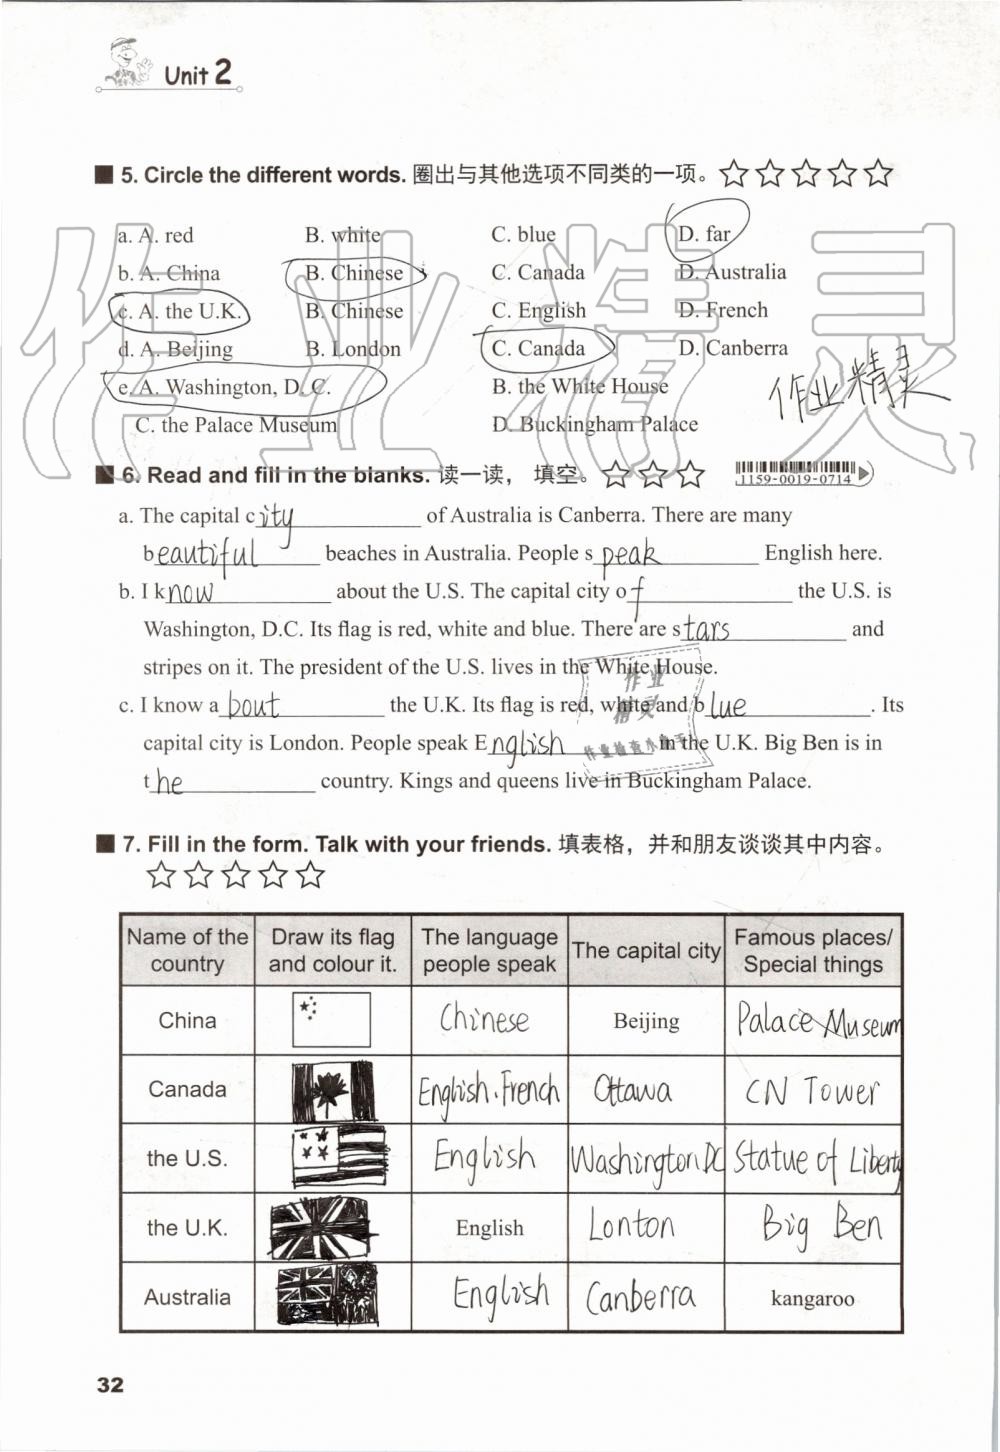 Unit 2
5. Circle the different words. 圈出与其他选项不同类的一项。
a. A. red B. white C. blue D. far
b. A. China B. Chinese C. Canada D. Australia
c. A. the U.K. B. Chinese C. English D. French
d. A. Beijing B. London C. Canada D. Canberra
e. A. Washington, D.C. B. the White House
C. the Palace Museum D. Buckingham Palace
作业精灵
作业精灵
6. Read and fill in the blanks. 读一读，填空。
1159-0019-0714
a. The capital city of Australia is Canberra. There are many
beautiful beaches in Australia. People speak English here.
b. I know about the U.S. The capital city of the U.S. is
Washington, D.C. Its flag is red, white and blue. There are stars and
stripes on it. The president of the U.S. lives in the White House.
c. I know about the U.K. Its flag is red, white and blue. Its
capital city is London. People speak English in the U.K. Big Ben is in
the country. Kings and queens live in Buckingham Palace.
作业
精灵
作业检查小助手
7. Fill in the form. Talk with your friends. 填表格，并和朋友谈谈其中内容。
Name of the country Draw its flag and colour it. The language people speak The capital city Famous places/ Special things
China Chinese Beijing Palace Museum
Canada English、French Ottawa CN Tower
the U.S. English Washington DC Statue of Liberty
the U.K. English Lonton Big Ben
Australia English Canberra kangaroo
32